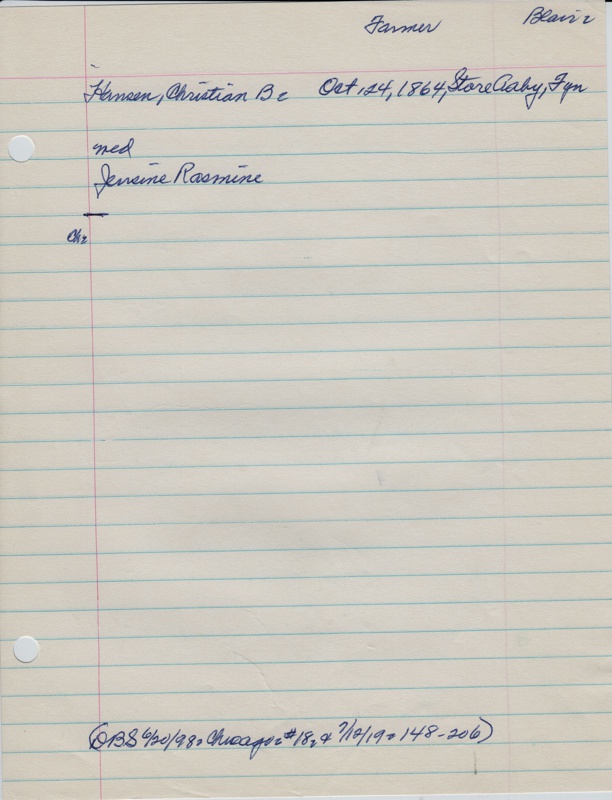 Farmer Blair:
Hansen, Christian B: Oct. 24, 1864, Store Aaby, Fyn
med
Jensine Rasmine
Ch:
(DBS 6/20/98: Chicago: #18, & 7/12/19: 148-206)